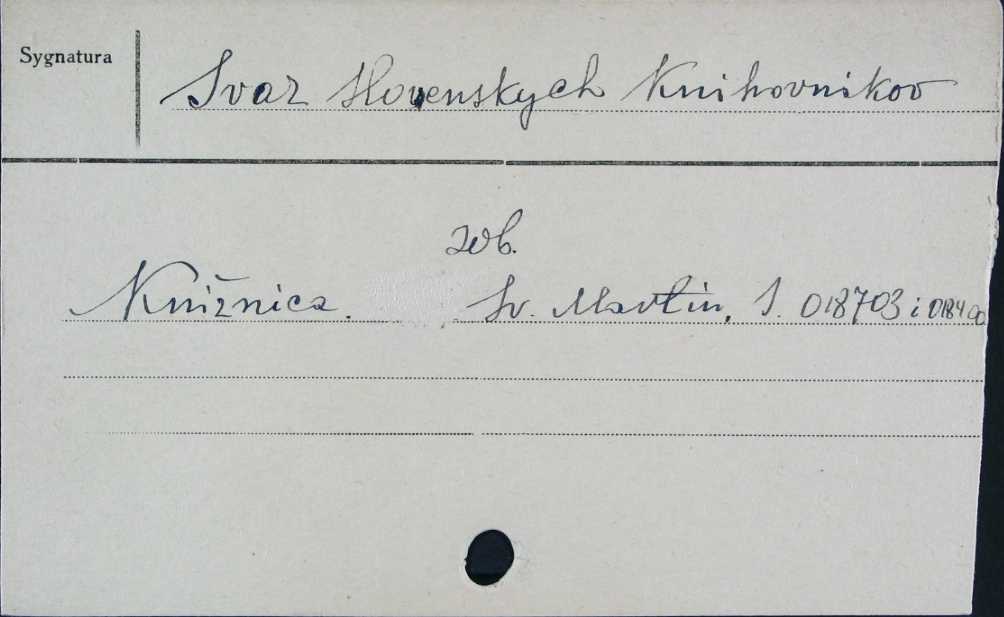 Sygnatura
Svaz Slovenskych Knihovnikov
zob.
Knižnica. Sv. Martin, S. 018703 i 018400